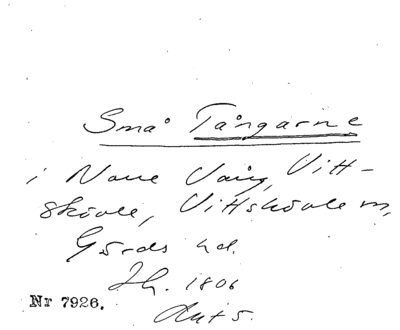 Små Tångarne
i Norre Vång, Vitt-
skövle, Vittskövle sn,
Gärds hd.
Zh. 1806
Akt 5.
Nr 7926.